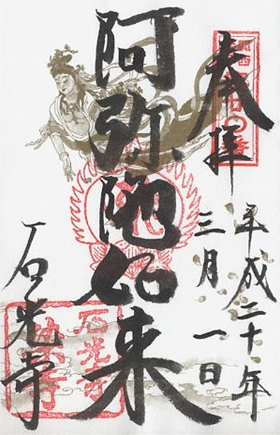 奉拝
平成二十年
三月一日
阿弥陀如来
石光寺
石光寺